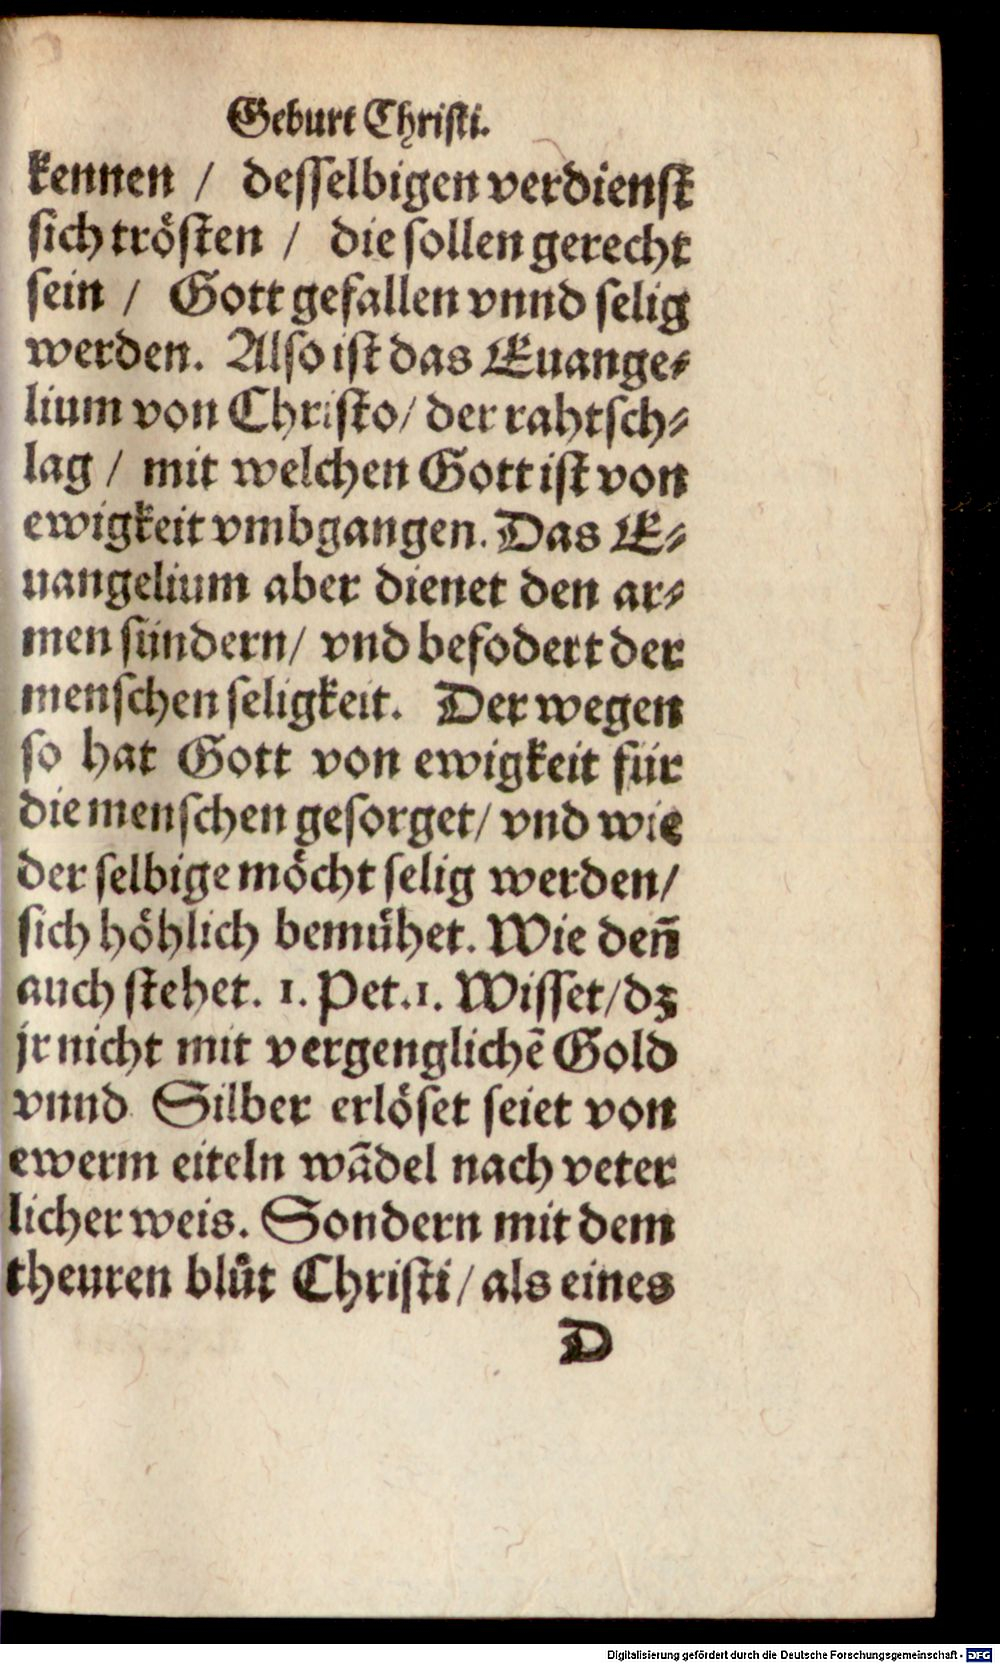 Geburt Chriſti.
kennen / deſſelbigen verdienſt
ſich tröſten / die ſollen gerecht
ſein / Gott gefallen vnnd ſelig
werden. Alſo iſt das Euange⸗
lium von Chriſto/ der rahtſch⸗
lag / mit welchen Gott iſt von
ewigkeit vmbgangen. Das E⸗
uangelium aber dienet den ar⸗
men ſündern/ vnd befodert der
menſchen ſeligkeit. Der wegen
ſo hat Gott von ewigkeit für
die menſchen geſorget/ vnd wie
der ſelbige möcht ſelig werden/
ſich höhlich bemühet. Wie deñ
auch ſtehet. 1. Pet.1. Wiſſet/dz
jr nicht mit vergenglichẽ Gold
vnnd Silber erlöſet ſeiet von
ewerm eiteln wãdel nach veter
licher weis. Sondern mit dem
theuren blůt Chriſti/ als eines
D
Digitalisierung gefördert durch die Deutsche Forschungsgemeinschaft - DFG